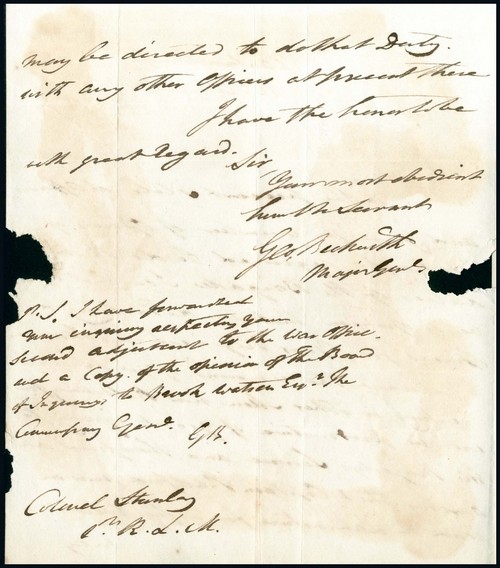 may be directed to do that Duty.
with any other Officers at present there
I have the honor to be
with great Regard.
Sir,
Your most obedient
humble Servant
Geo. Beckwith
Major Genl.
P.S. I have forwarded
your inquiry respecting your
second adjutant to the War Office.
and a Copy of the opinion of the Board
of Inquiry to Brook Watson Esqr. The
Commissary Genl.
GB.
Colonel Stanley
1st R. L. M.